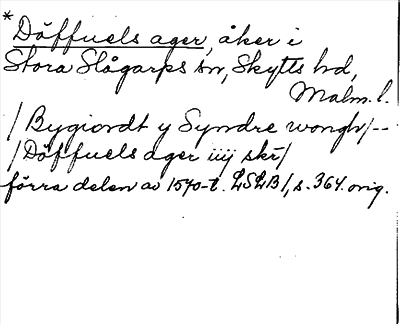 *Döffuels ager, åker i
Stora Slågarps sn, Skytts hd,
Malm. l.
/Bygiordt y Syndre wongh/--
/Döffuels ager iiij skr/
förra delen av 1570-t. LSLB/, s. 364. orig.